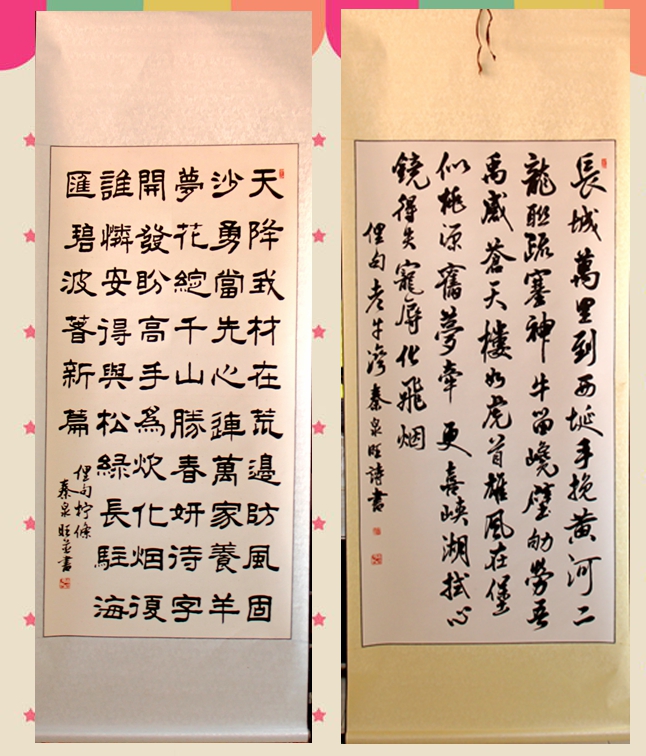 天降我材在荒邊防風固
沙勇當先心連萬家養羊
夢花綻千山勝春妍待字
開發盼高手為炊化烟復
誰憐安得與松綠長駐海
匯碧波著新篇
俚句柠條
秦泉旺並書
長城萬里到西埏手挽黃河二
龍聯疏塞神牛留嶢壁劬勞吾
禹威蒼天樓如虎首雄風在堡
似桃源舊夢牽更喜峽湖拭心
鏡得失寵辱化飛烟
俚句老牛灣秦泉旺詩書